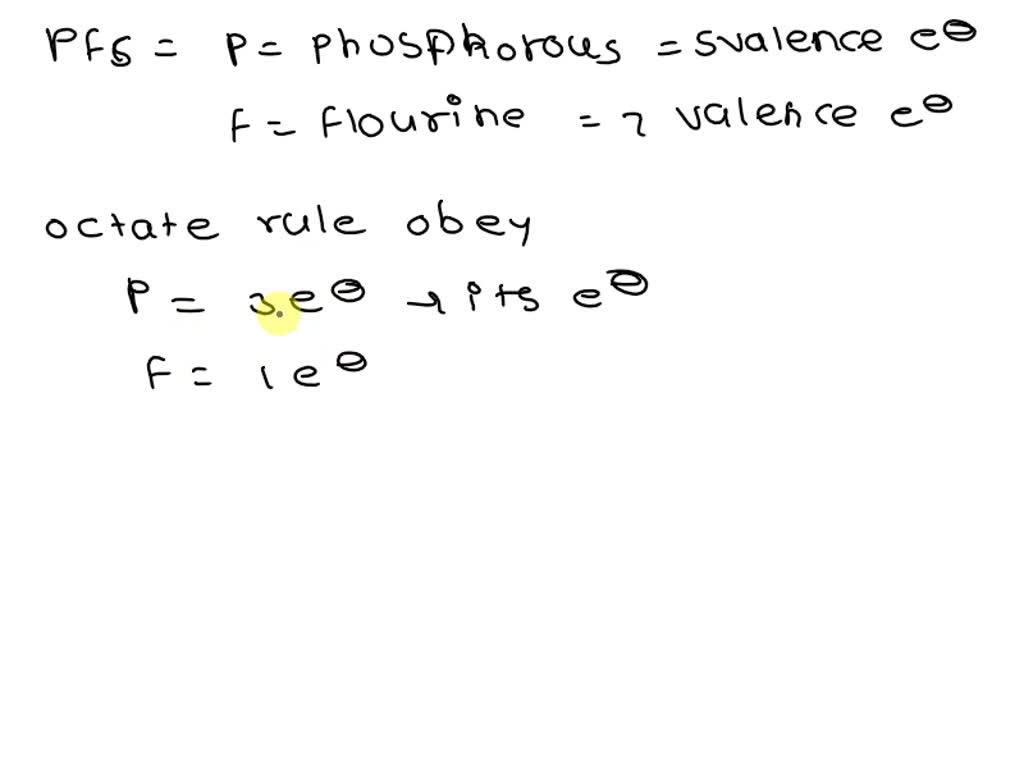 PF5 = P = phosphorous = 5valence e⊖
F = flourine = 7 valence e⊖
octate rule obey
P = 3e⊖ → its e⊖
F = 1e⊖